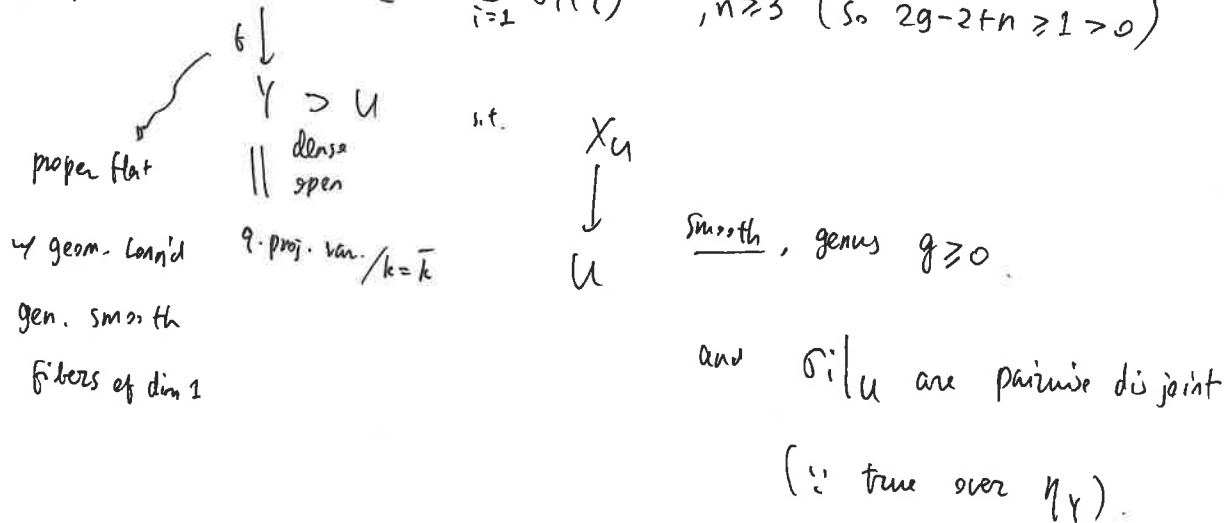 i=1 , n≥3 (so 2g-2+n ≥ 1 > 0)
f ↓
Y ⊃ U s.t. X_U
proper flat || dense open ↓
w/ geom. conn'd q. proj. var. /k = k̄ U smooth, genus g≥0.
gen. smooth
fibers of dim 1 and σi|_U are pairwise disjoint
(∵ true over η_Y).